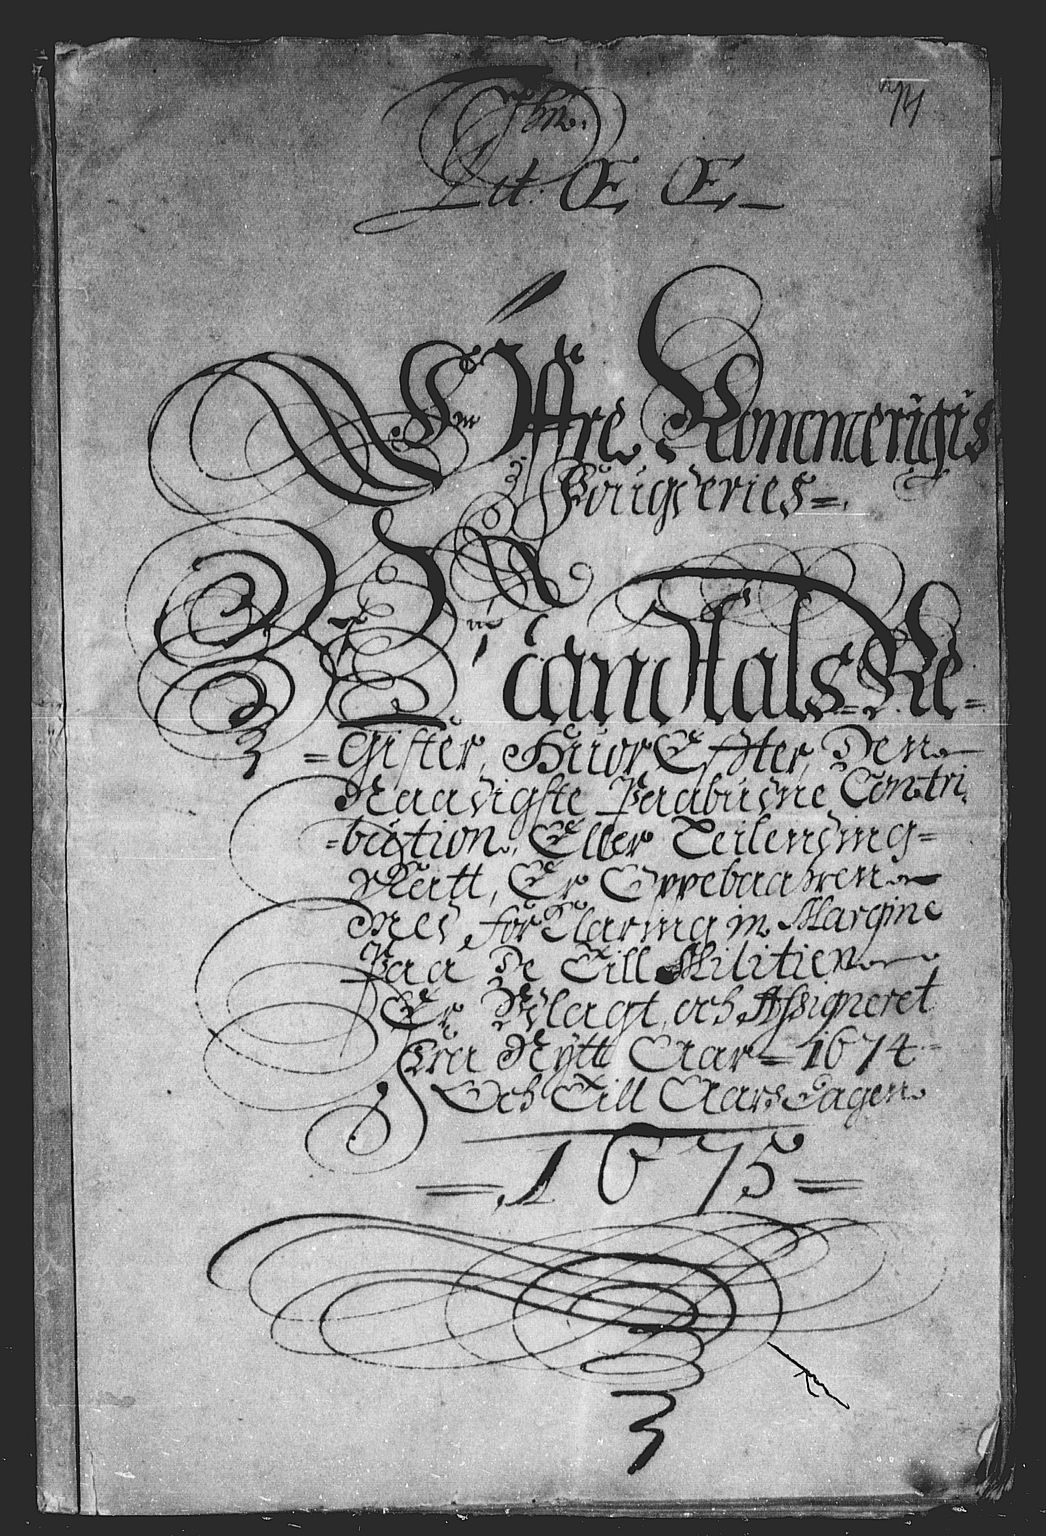 74
Lit: Œ Œ
Øffre Rommerigis
Fougderies
Et
Mandtals Re-
gister, Huor Effter, Den
Naadigste Paabudne Contri-
bution, Eller Teilending-
skatt, Er Oppebaaren
Med forklaring in Margine
Paa De Till Militien
Er Udlagt, och Assigneret
fra Nÿtt Aar 1674
Och Till Aars Dagen
1675